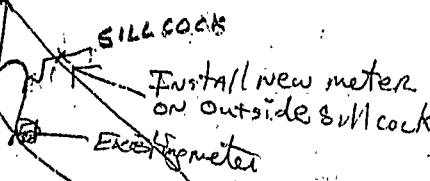 SILLCOCK
Install new meter
on outside sillcock
Existing meter